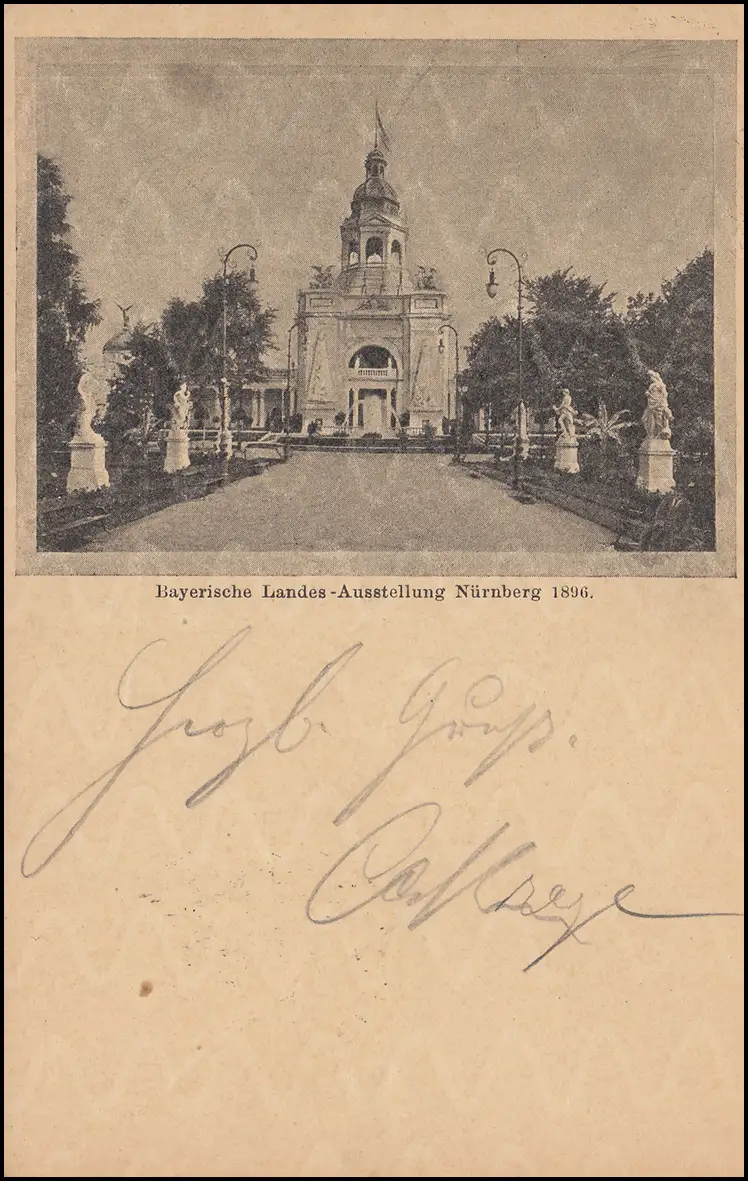 Bayerische Landes-Ausstellung Nürnberg 1896.
Herzl. Gruß.